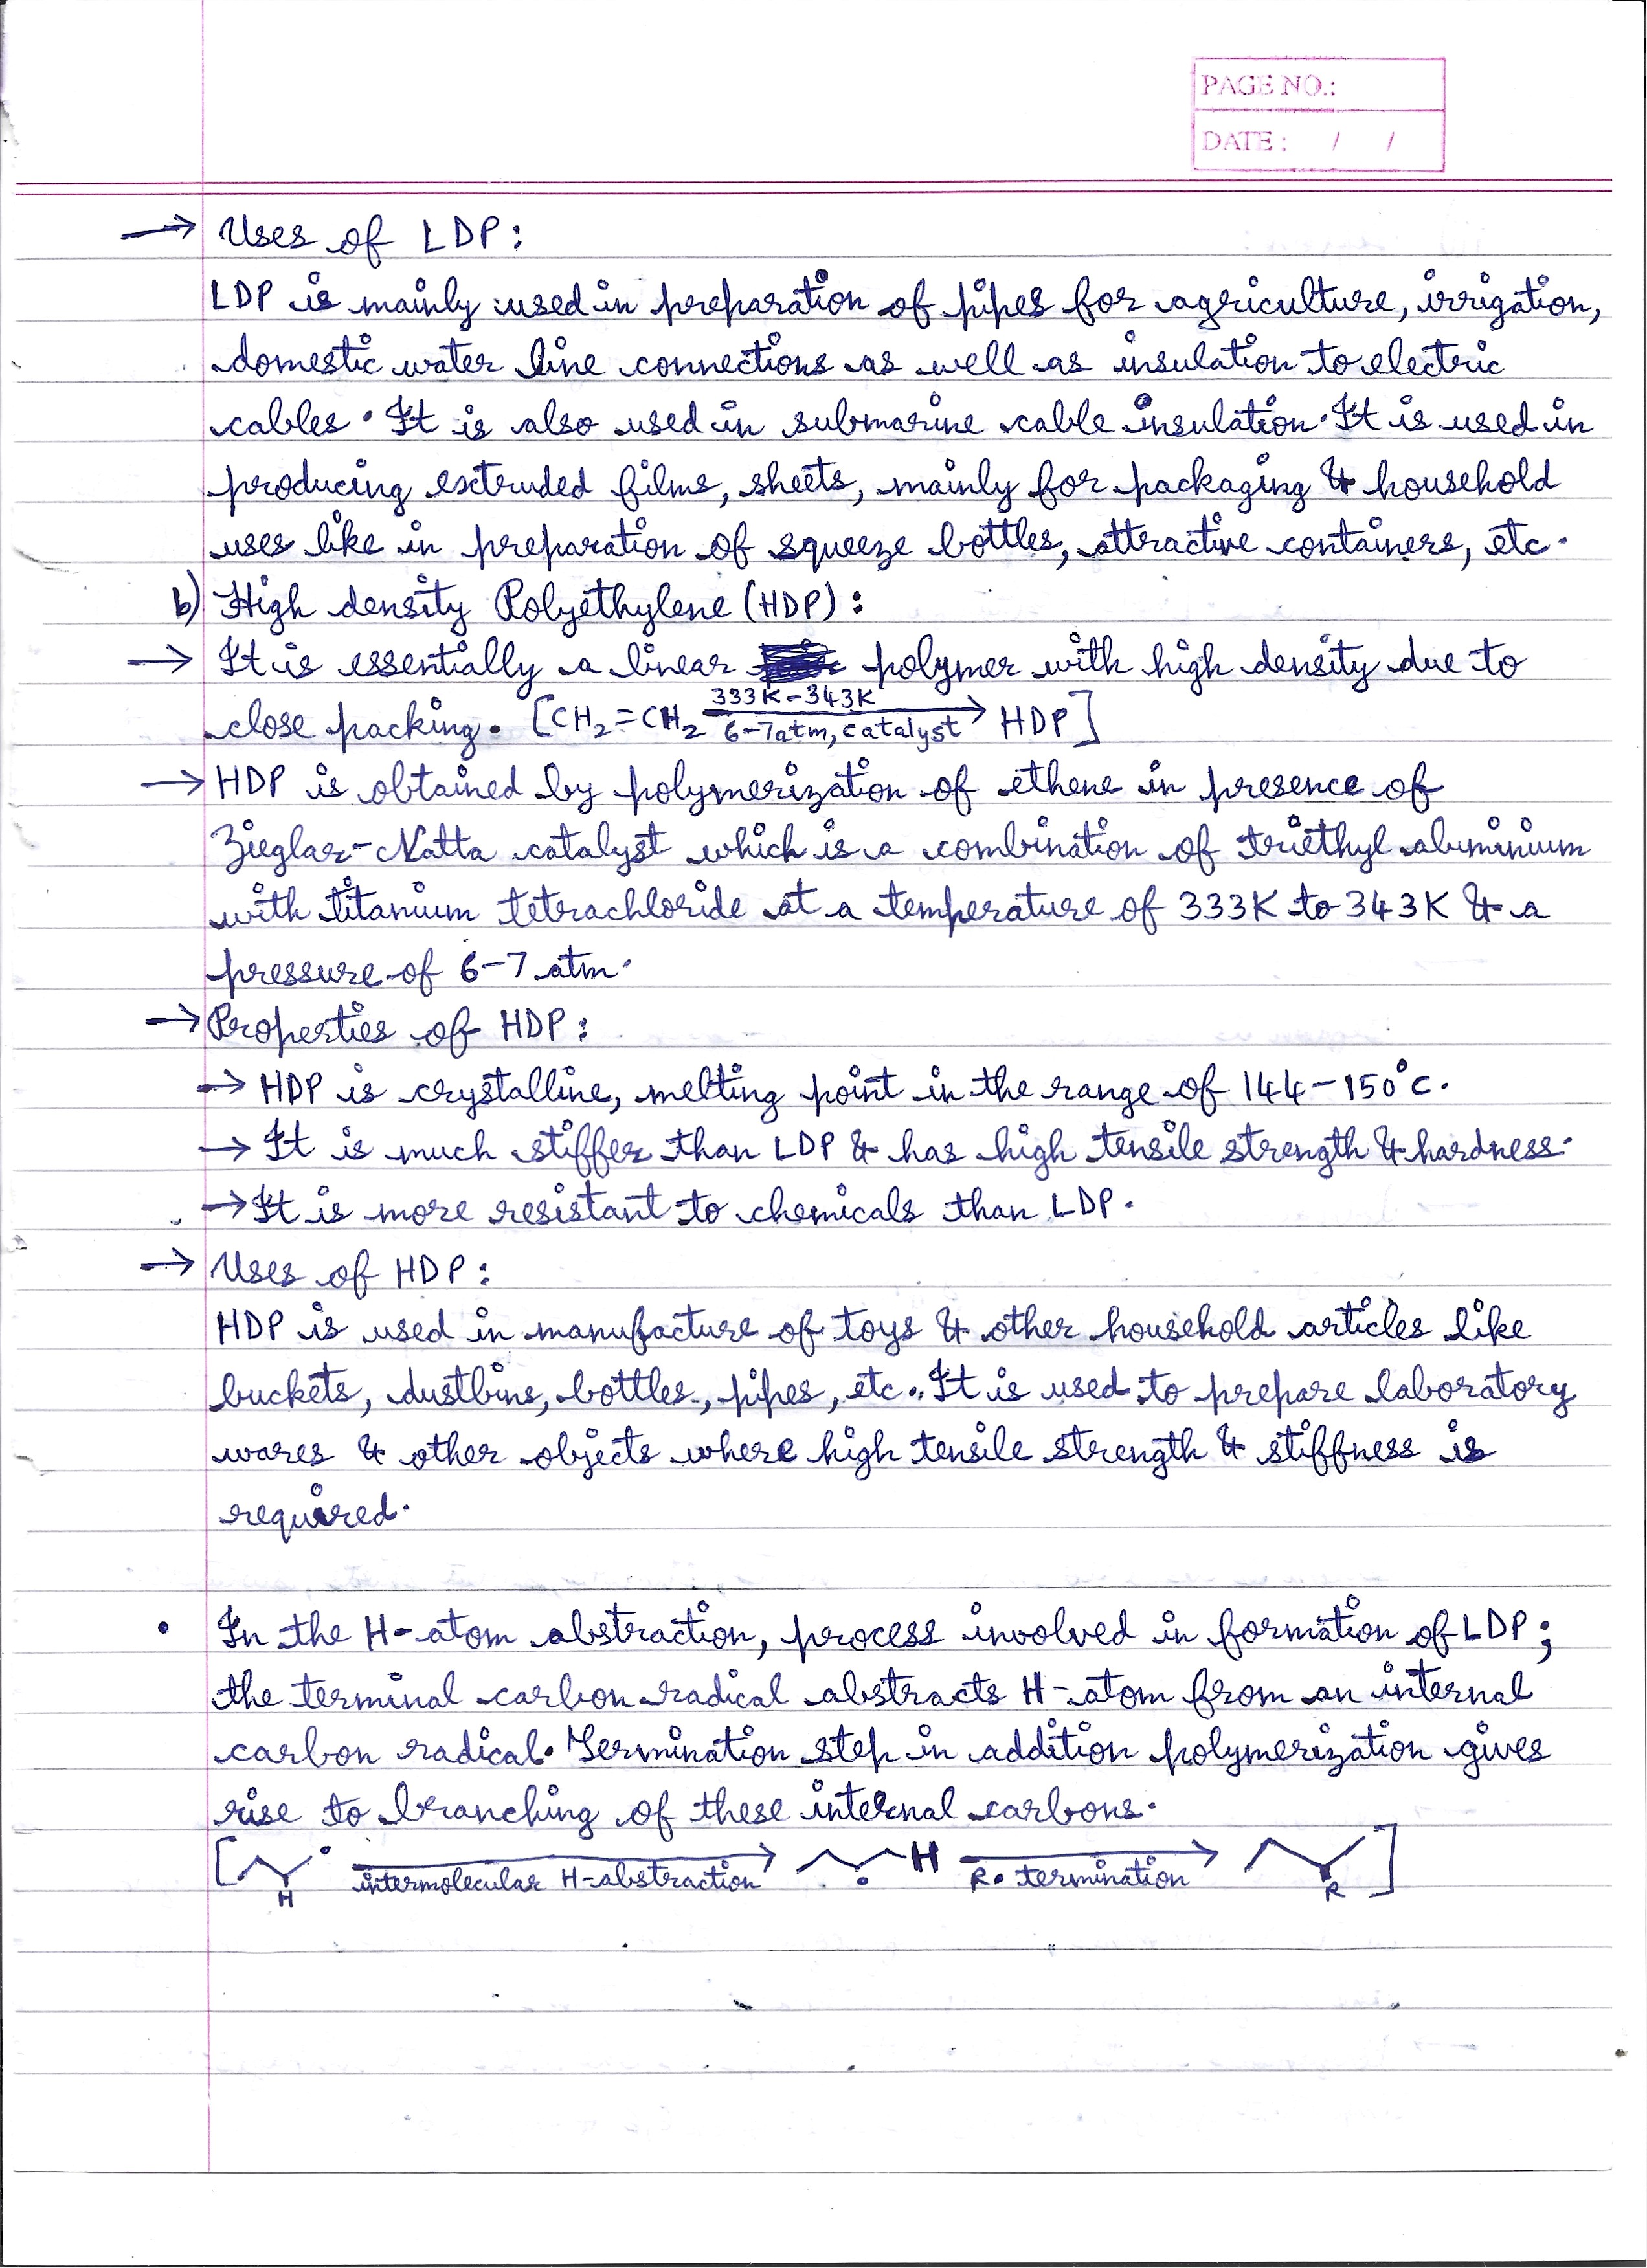 PAGE NO.:
DATE : / /
→ Uses of LDP:
LDP is mainly used in preparation of pipes for agriculture, irrigation,
domestic water line connections as well as insulation to electric
cables. It is also used in submarine cable insulation. It is used in
producing extruded films, sheets, mainly for packaging & household
uses like in preparation of squeeze bottles, attractive containers, etc.
b) High density Polyethylene (HDP):
→ It is essentially a linear polymer with high density due to
333K-343K
close packing. [CH₂=CH₂ → HDP]
6-7atm, catalyst
→ HDP is obtained by polymerization of ethene in presence of
Zieglar-Natta catalyst which is a combination of triethyl aluminium
with titanium tetrachloride at a temperature of 333K to 343K & a
pressure of 6-7 atm.
→ Properties of HDP:
→ HDP is crystalline, melting point in the range of 144-150°c.
→ It is much stiffer than LDP & has high tensile strength & hardness.
→ It is more resistant to chemicals than LDP.
→ Uses of HDP:
HDP is used in manufacture of toys & other household articles like
buckets, dustbins, bottles, pipes, etc. It is used to prepare laboratory
wares & other objects where high tensile strength & stiffness is
required.
• In the H-atom abstraction, process involved in formation of LDP;
the terminal carbon radical abstracts H-atom from an internal
carbon radical. Termination step in addition polymerization gives
rise to branching of these internal carbons.
[ H • intermolecular H-abstraction → • H R• termination → R ]